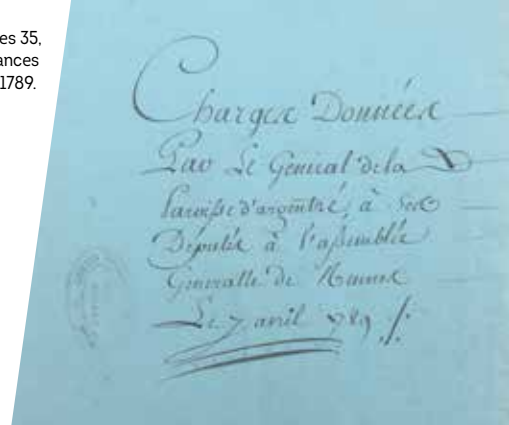 es 35,
ances
1789.
Charges Données
Par Le General dela
Paroisse d'argentré, à Ses
Députés à l'assemblée
Generalle de Rennes
Le 7 avril 789 ./.